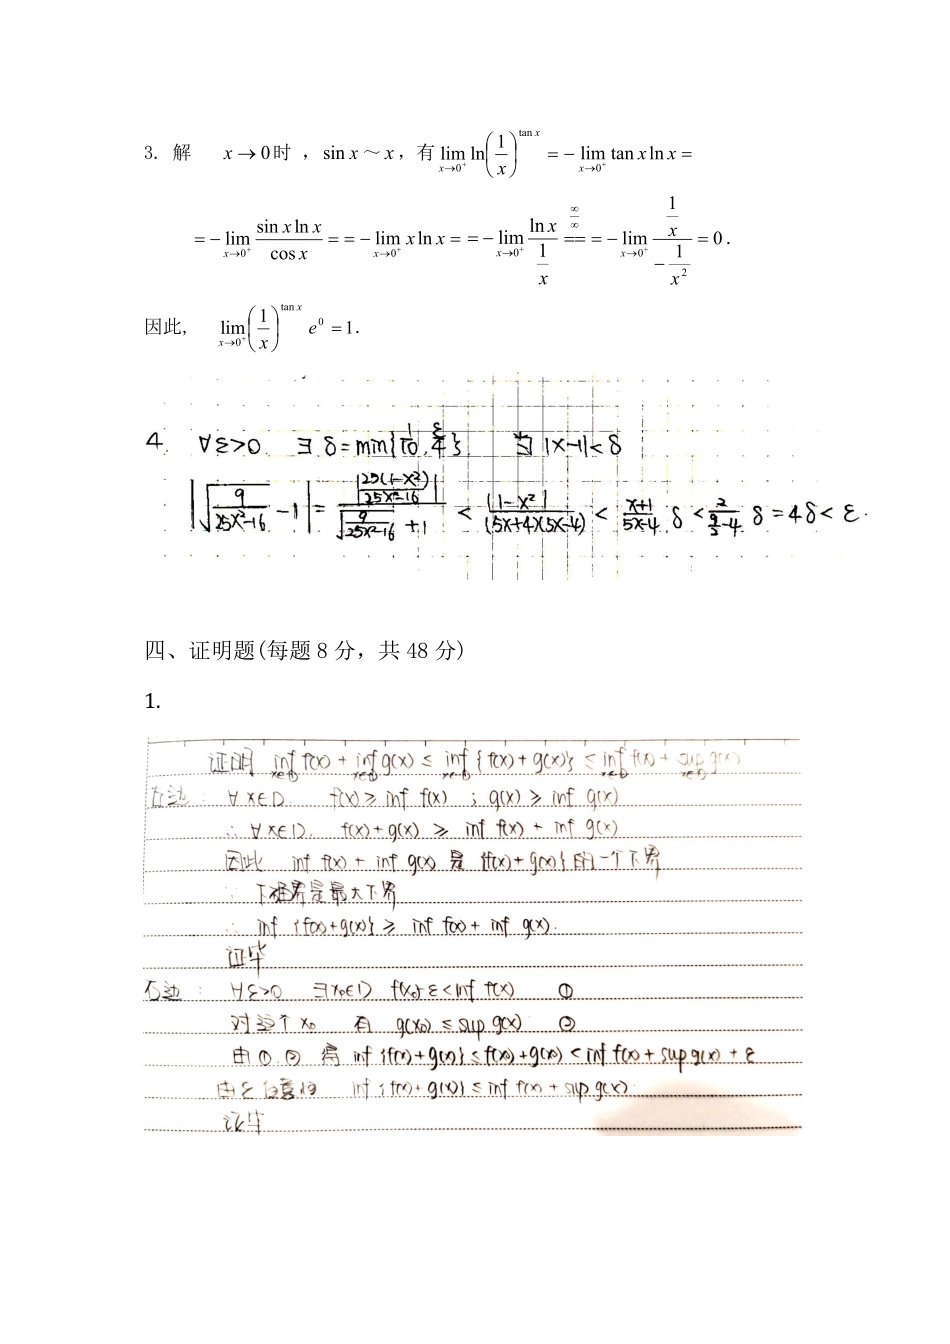 3. 解 x → 0时 , sin x ～ x , 有 lim_{x→0⁺} ln(1/x)^{tan x} = − lim_{x→0⁺} tan x ln x =
= − lim_{x→0⁺} (sin x ln x)/(cos x) = = − lim_{x→0⁺} x ln x = = − lim_{x→0⁺} (ln x)/(1/x) ==^{∞/∞} = − lim_{x→0⁺} (1/x)/(−1/x²) = 0 .
因此, lim_{x→0⁺} (1/x)^{tan x} e⁰ = 1 .
4. ∀ε>0. ∃ δ=min{1/10, ε/4} 当 |x-1|<δ
|√(9/(25x²-16)) -1| = |25(1-x²)/(25x²-16)| / (√(9/(25x²-16)) +1) < |1-x²|/((5x+4)(5x-4)) < (x+1)/(5x-4) δ < 2/(9/2-4) δ = 4δ < ε.
四、证明题(每题 8 分，共 48 分)
1.
证明 inf_{x∈D} f(x) + inf_{x∈D} g(x) ≤ inf_{x∈D} {f(x)+g(x)} ≤ inf_{x∈D} f(x) + sup_{x∈D} g(x)
左边: ∀x∈D. f(x) ≥ inf f(x) ; g(x) ≥ inf g(x)
∴ ∀x∈D. f(x)+g(x) ≥ inf f(x) + inf g(x)
因此 inf f(x) + inf g(x) 是 {f(x)+g(x)} 的一个下界
∵ 下确界是最大下界
∴ inf {f(x)+g(x)} ≥ inf f(x) + inf g(x).
证毕
右边: ∀ε>0 ∃x₀∈D f(x₀)-ε<inf f(x) ①
对这个 x₀ 有 g(x₀) ≤ sup g(x) ②
由①.② 得 inf {f(x)+g(x)} ≤ f(x₀)+g(x₀) < inf f(x) + sup g(x) + ε
由ε任意性 inf {f(x)+g(x)} ≤ inf f(x) + sup g(x).
证毕